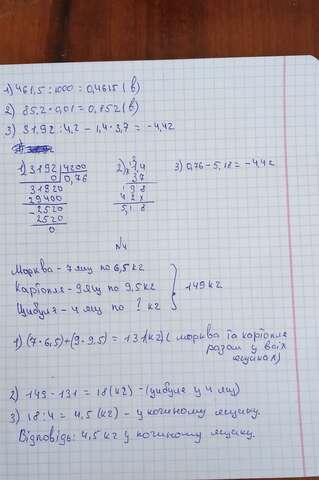 1) 461,5 : 1000 = 0,4615 (в)
2) 85.2 · 0,01 = 0,852 (в)
3) 31.92 : 4,2 – 1,4 · 3,7 = –4,42
1) 3192 | 4200
0 | 0,76
31920
29400
2520
2520
0
2) 1,4
3,7
98
42
5,18
3) 0,76 – 5,18 = –4,42
N4
Морква – 7 ящ по 6,5 кг
Картопля – 9 ящ по 9,5 кг
Цибуля – 4 ящ по ? кг
149 кг
1) (7 · 6,5) + (9 · 9,5) = 131 (кг) ( морква та картопля
разом у всіх
ящиках)
2) 149 – 131 = 18 (кг) – (цибулі у 4 ящ)
3) 18 : 4 = 4,5 (кг) – у кожному ящику.
Відповідь: 4,5 кг у кожному ящику.